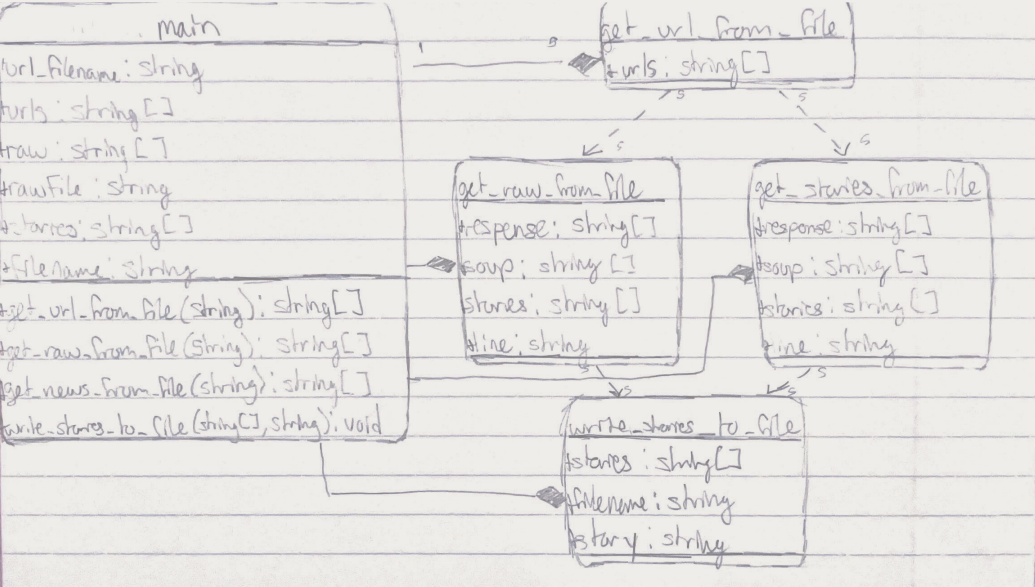 main
+url_filename: string
+urls: string[]
+raw: string[]
+rawFile: string
+stories: string[]
+filename: string
+get_url_from_file(string): string[]
+get_raw_from_file(string): string[]
+get_news_from_file(string): string[]
+write_stories_to_file(string[], string): void
1
s
get_url_from_file
+urls: string[]
s
s
s
s
get_raw_from_file
+response: string[]
+soup: string[]
stories: string[]
+line: string
get_stories_from_file
+response: string[]
+soup: string[]
+stories: string[]
+line: string
s
s
s
s
write_stories_to_file
+stories: string[]
+filename: string
+story: string